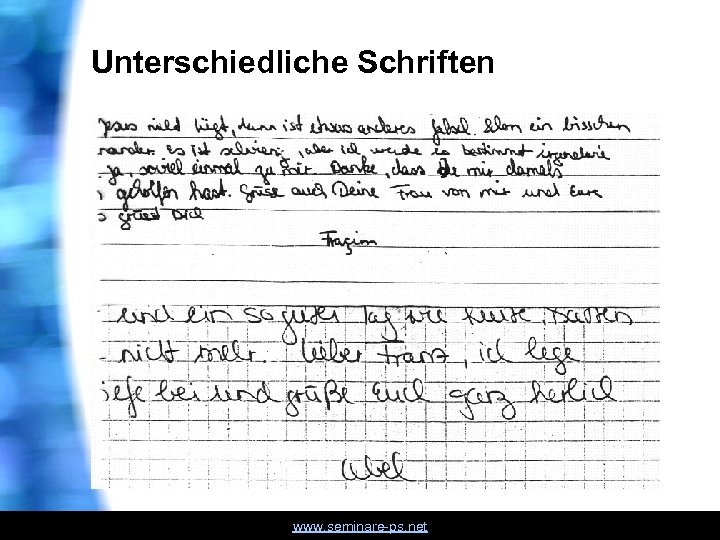 Unterschiedliche Schriften
Jesus nicht lügt, dann ist etwas anderes ein bisschen
Es ist schwierig, aber ich werde es bestimmt irgendwie
ja, soviel einmal zu mir. Danke, dass Du mir damals
geholfen hast. Grüsse auch Deine Frau von mir und Eure
grüsst Dich
und ein so guter Tag wie heute,
nicht mehr. Lieber Franz, ich lege
bei und grüße Euch ganz herlich
www.seminare-ps.net